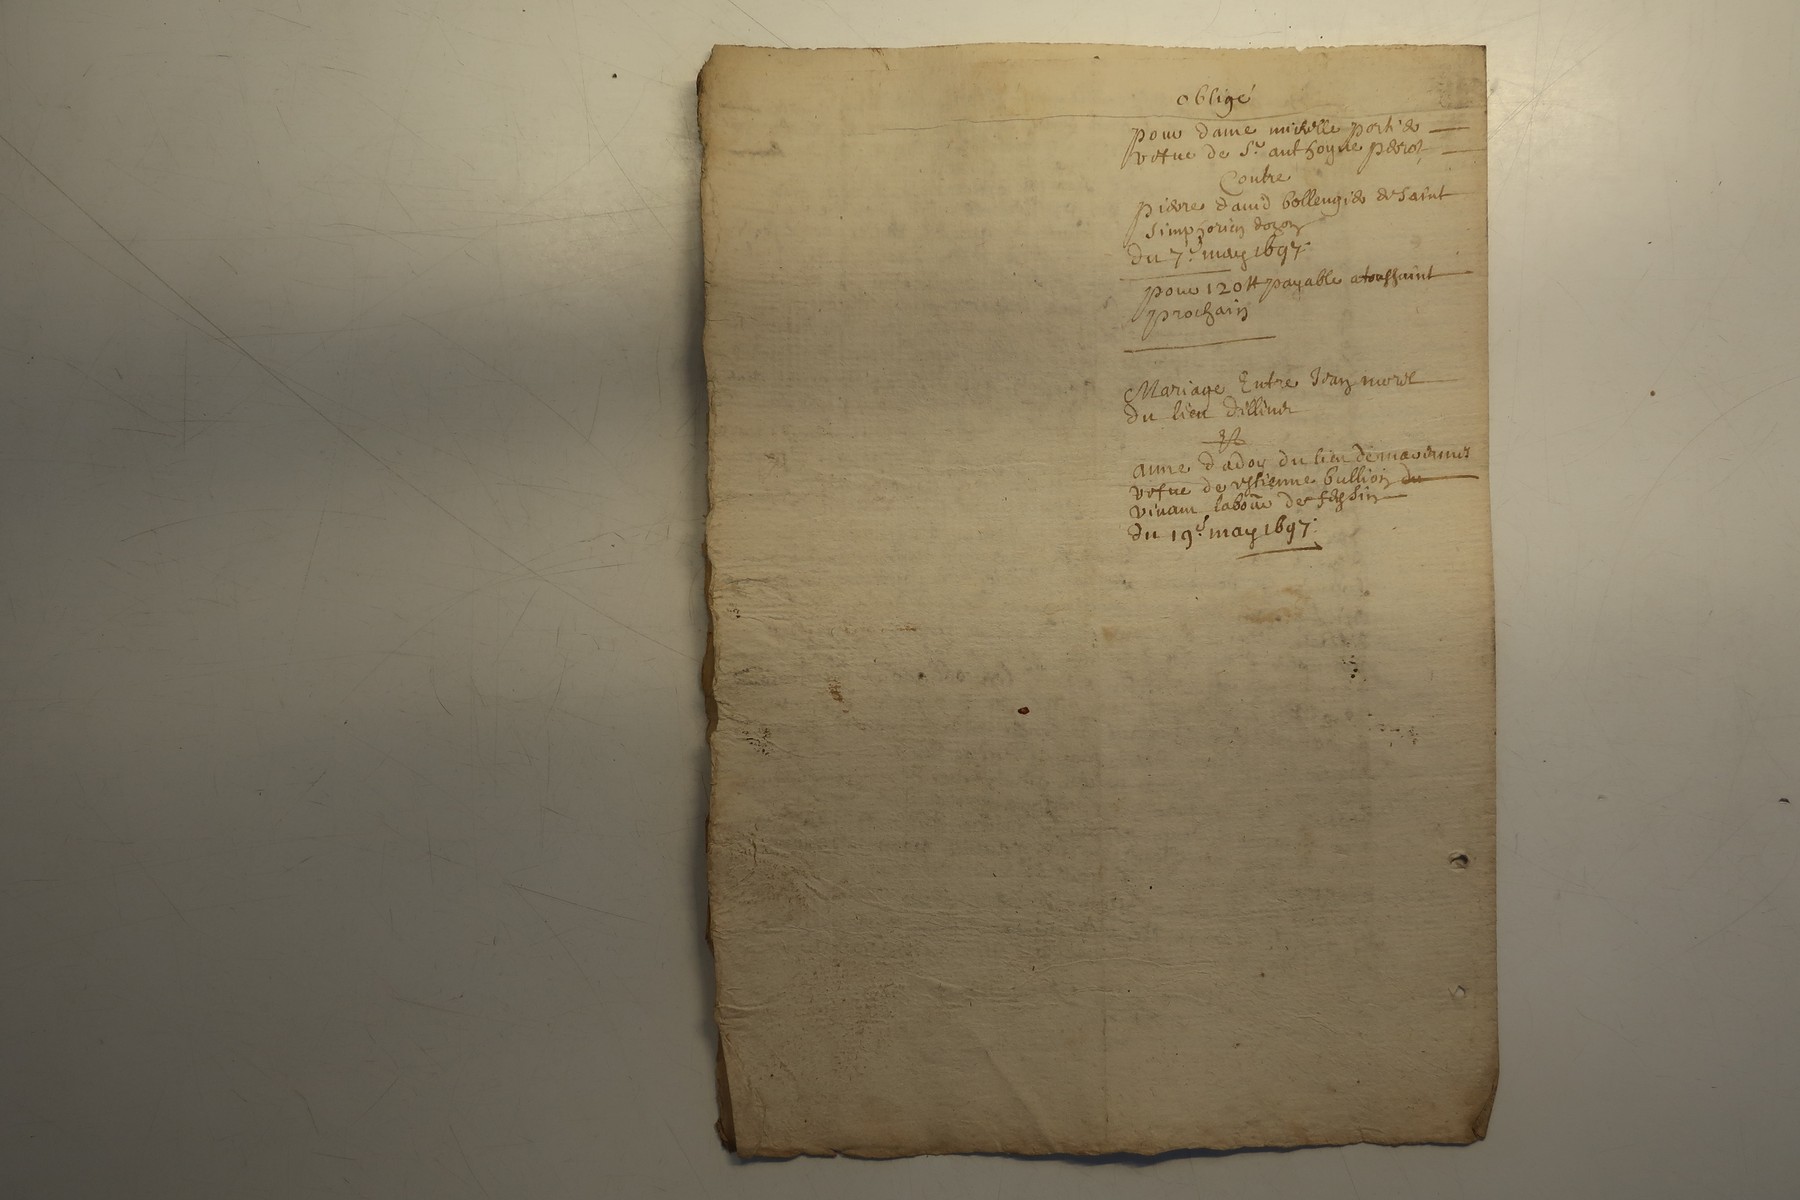 oblige
pour dame michelle portier
vefue de Sr anthoyne perot
Contre
pierre dauid bollengier de Saint
Simphorien dozon
du 7e may 1697
pour 120 ₶ payable a toussaint
prochain
Mariage Entre Jean morel
du lieu dillins
Et
anne dadoz du lieu de marennes
vefue de estienne bullion du
viuant labour de
du 19e may 1697